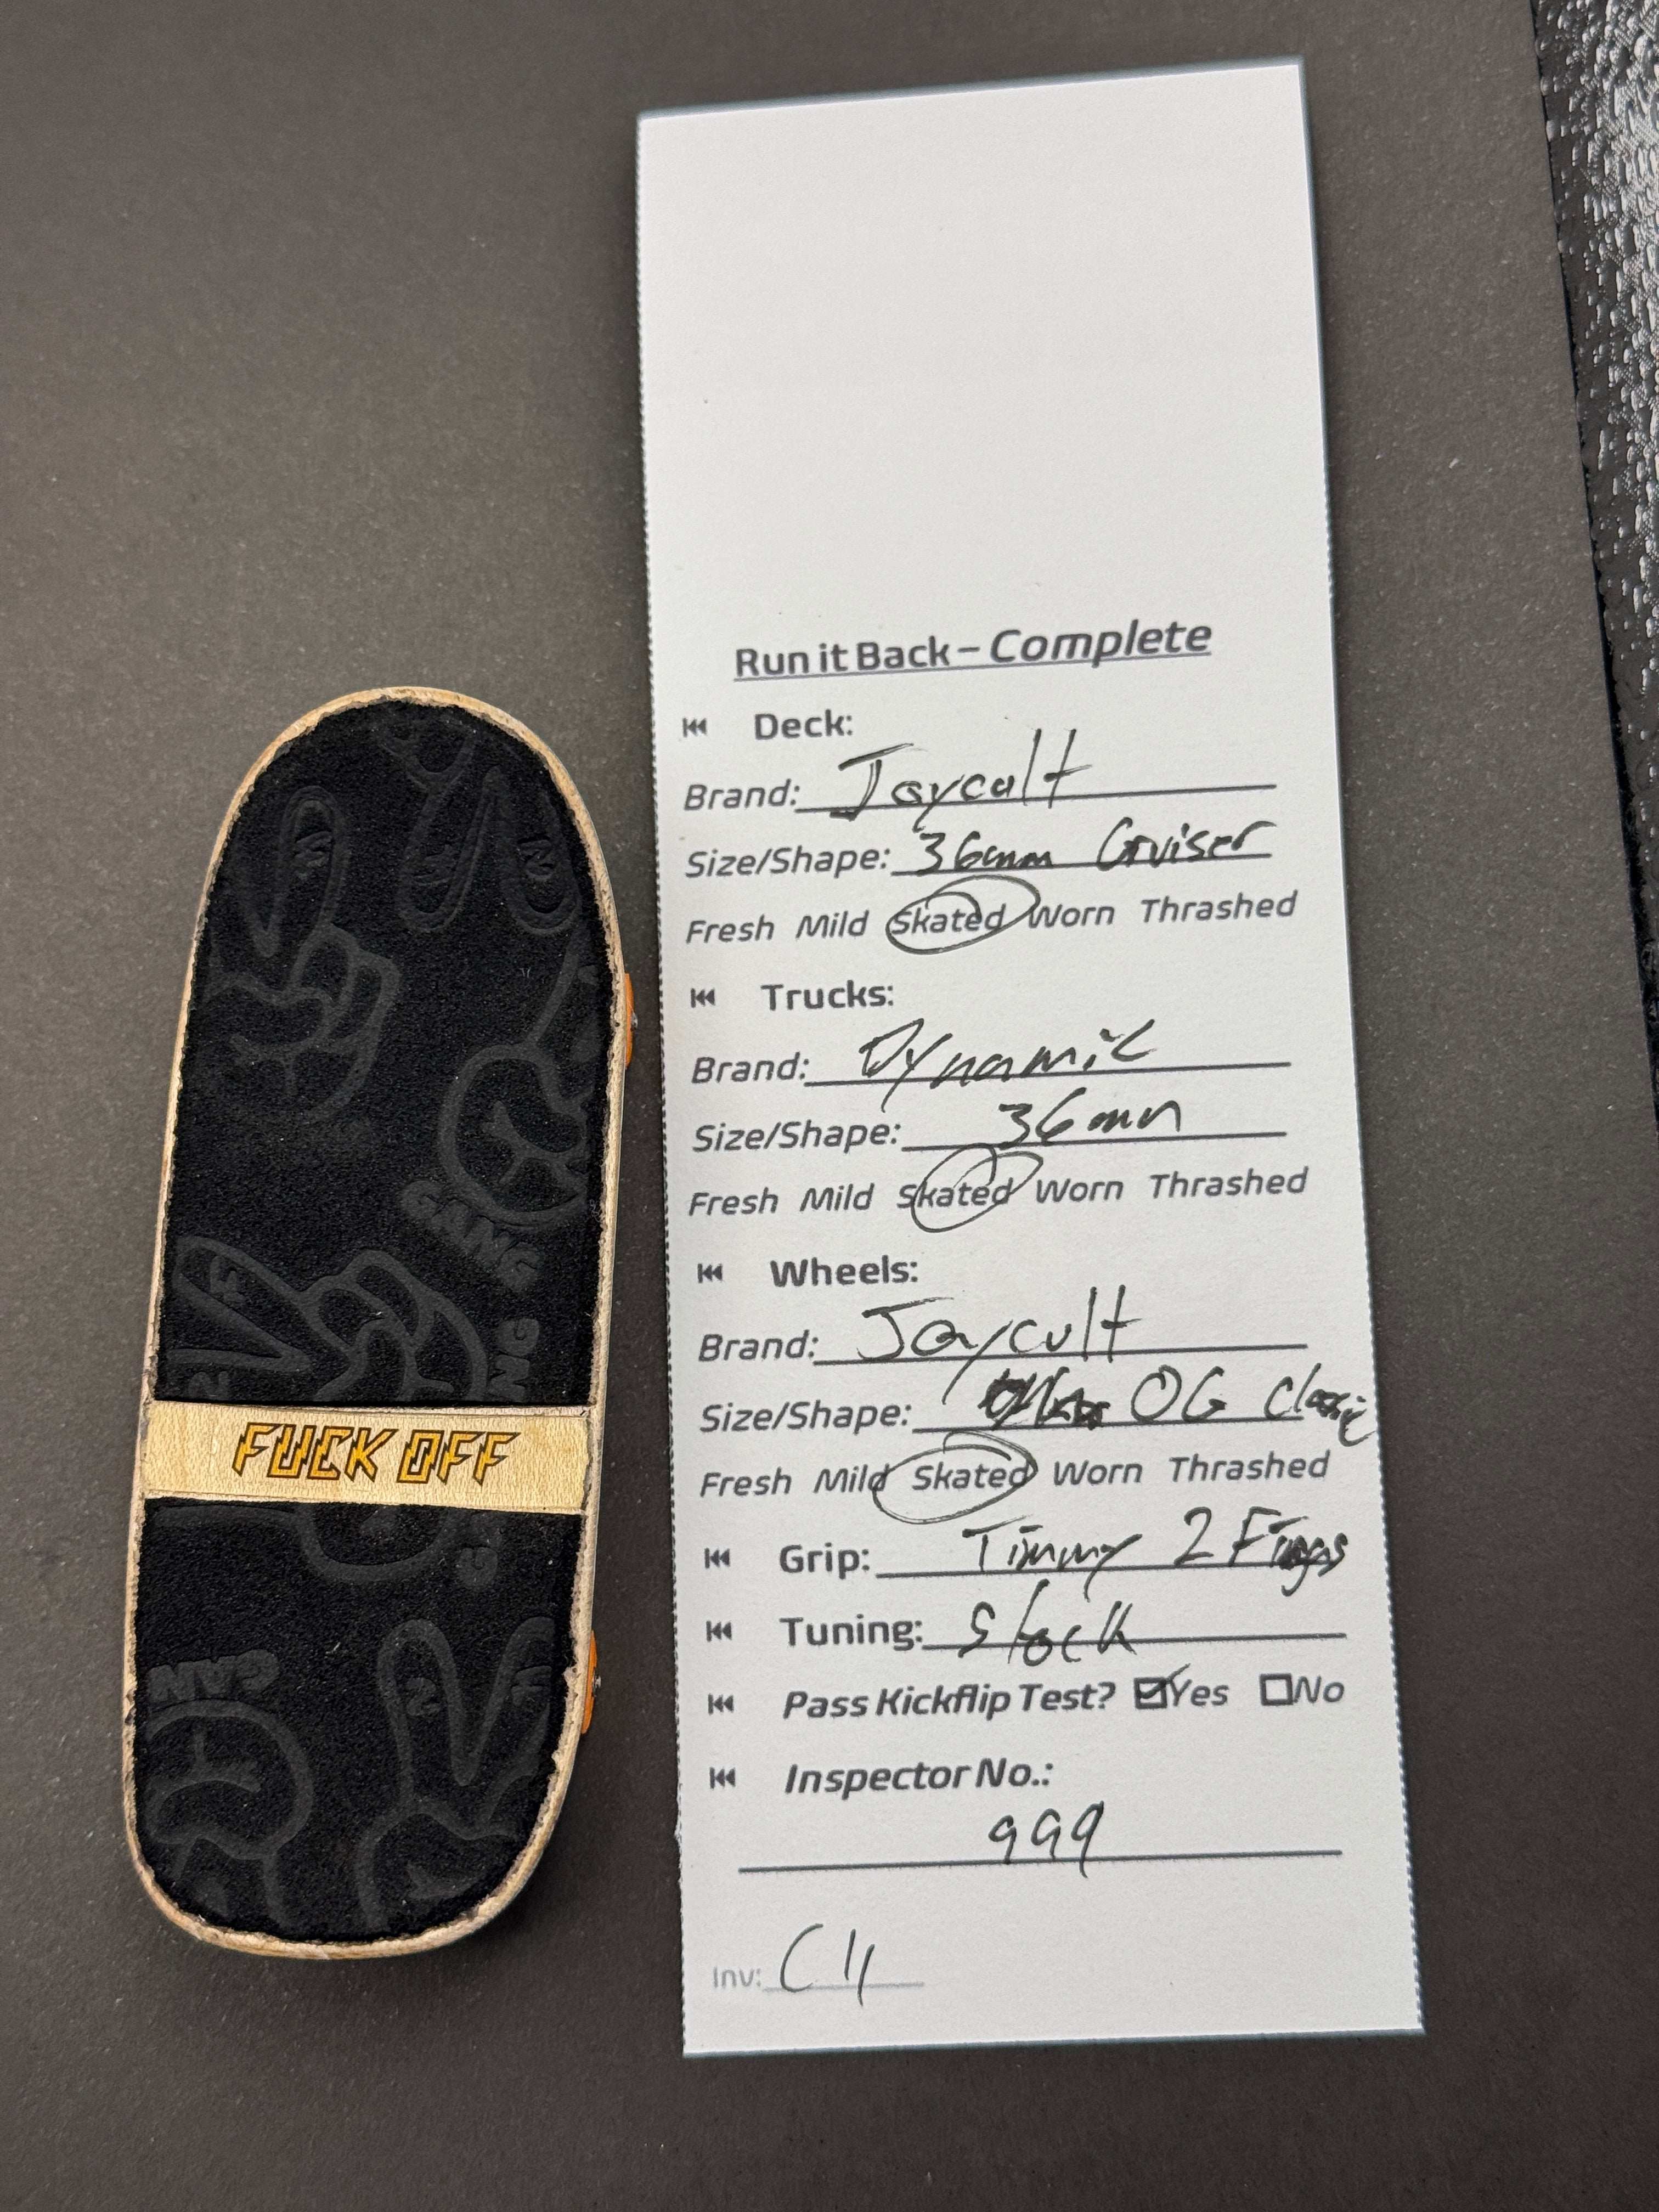 Run it Back – Complete
Deck:
Brand: Joycult
Size/Shape: 36mm Cruiser
Fresh Mild Skated Worn Thrashed
Trucks:
Brand: Dynamic
Size/Shape: 36mm
Fresh Mild Skated Worn Thrashed
Wheels:
Brand: Joycult
Size/Shape: OG Classic
Fresh Mild Skated Worn Thrashed
Grip: Timmy 2 Fings
Tuning: Stock
Pass Kickflip Test? Yes No
Inspector No.:
999
Inv: C11
FUCK OFF
GANG
ANG
GAN